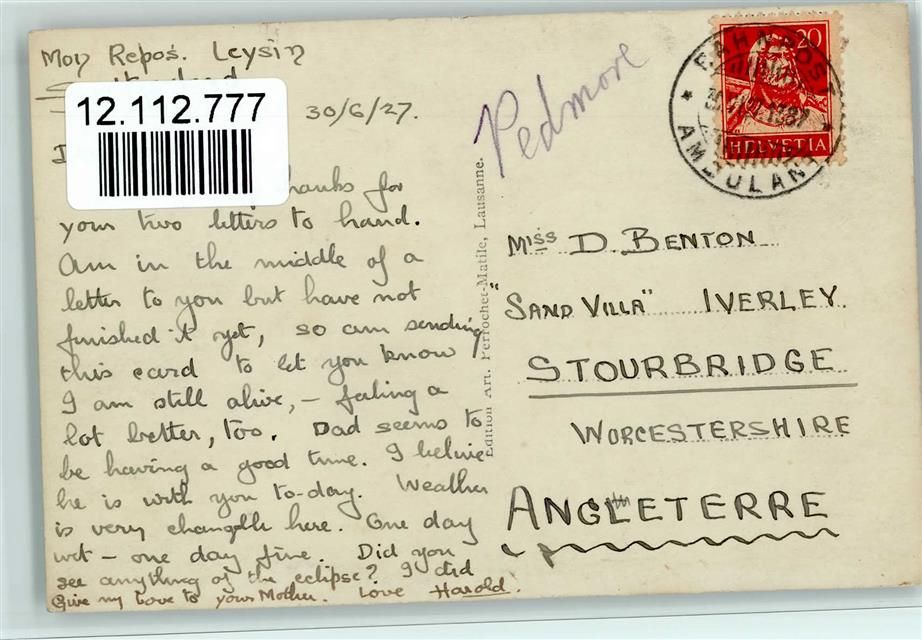 Mon Repos. Leysin
12.112.777
30/6/27.
Thanks for
your two letters to hand.
Am in the middle of a
letter to you but have not
finished it yet, so am sending
this card to let you know
I am still alive, – feeling a
lot better, too. Dad seems to
be having a good time. I believe
he is with you to-day. Weather
is very changable here. One day
wet – one day fine. Did you
see anything of the eclipse? I did
Give my love to your Mother. Love Harold.
Edition Art. Perrochet-Matile, Lausanne.
Pedmore
20
HELVETIA
BAHNPOST
AMBULANT
Miss D. BENTON
"SAND VILLA" IVERLEY
STOURBRIDGE
WORCESTERSHIRE
ANGLETERRE